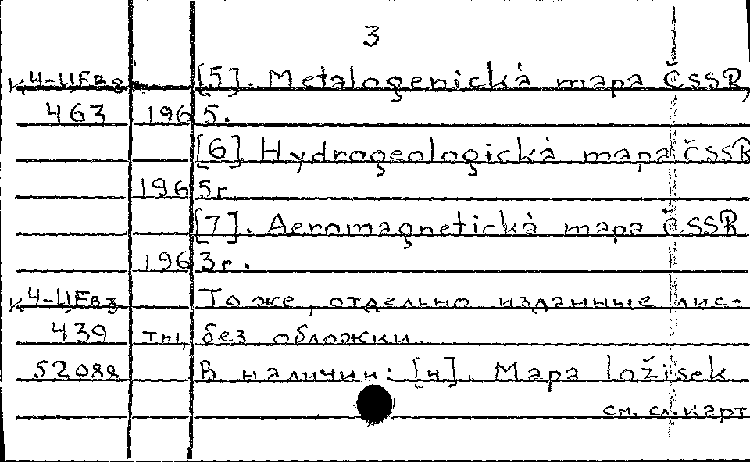 3
К4-ЦЕв8 [5]. Metalogenická mapa ČSSR,
463 1965.
[6] Hydrogeologická mapa ČSSR
1965г.
[7]. Aeromagnetická mapa ČSSR
1963г.
К4-ЦЕв3 То же, отдельно изданные лис-
439 ты, без обложки.
52088 В наличии: [4]. Mapa ložisek
см. сл. карт